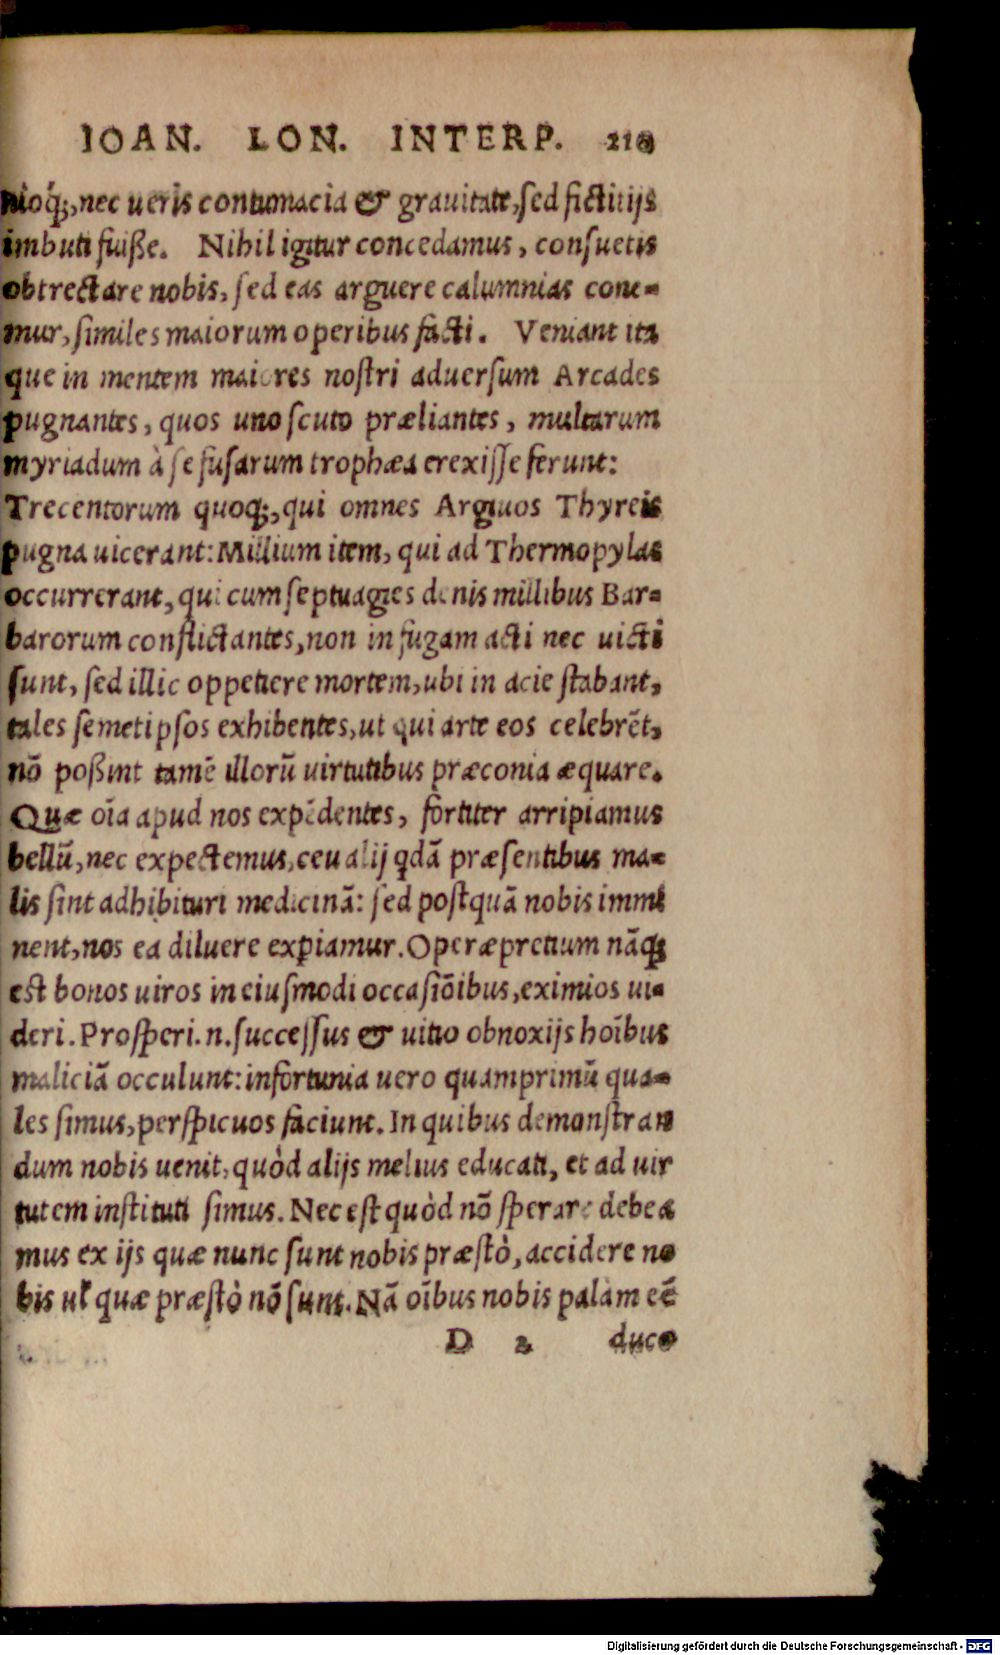 IOAN. LON. INTERP.
nioq́;,nec ueris contumacia & grauitate,sed fictitijs
imbuti fuiße. Nihil igitur concedamus, consuetis
obtrectare nobis, sed eas arguere calumnias cone-
mur, similes maiorum operibus facti. Veniant ita
que in mentem maiores nostri aduersum Arcades
pugnantes, quos uno scuto præliantes, multarum
myriadum à se fusarum trophæa erexisse ferunt:
Trecentorum quoq;,qui omnes Argiuos Thyreis
pugna uicerant: Millium item, qui ad Thermopylas
occurrerant, qui cum septuagies denis millibus Bar-
barorum conflictantes,non in fugam acti nec uicti
sunt, sed illic oppetiere mortem,ubi in acie stabant,
tales semetipsos exhibentes,ut qui arte eos celebrẽt,
nõ poßint tamẽ illorũ uirtutibus præconia æquare.
Quæ oĩa apud nos expẽdentes, fortiter arripiamus
bellũ,nec expectemus,ceu alij qdã præsentibus ma-
lis sint adhibituri medicinã: sed postquã nobis immi
nent,nos ea diluere expiamur. Operæpretium nãq;
est bonos uiros in eiusmodi occasiõibus,eximios ui-
deri. Prosperi.n.successus & uitio obnoxijs hoĩbus
maliciã occulunt: infortunia uero quamprimũ qua-
les simus,perspicuos faciunt. In quibus demonstran
dum nobis uenit, quòd alijs melius educati, et ad uir
tutem instituti simus. Nec est quòd nõ sperare debea
mus ex ijs quæ nunc sunt nobis præstò, accidere no
bis ul̃ quæ præstò nõ sunt. Nã oĩbus nobis palàm eẽ
D 2 duco
Digitalisierung gefördert durch die Deutsche Forschungsgemeinschaft - DFG